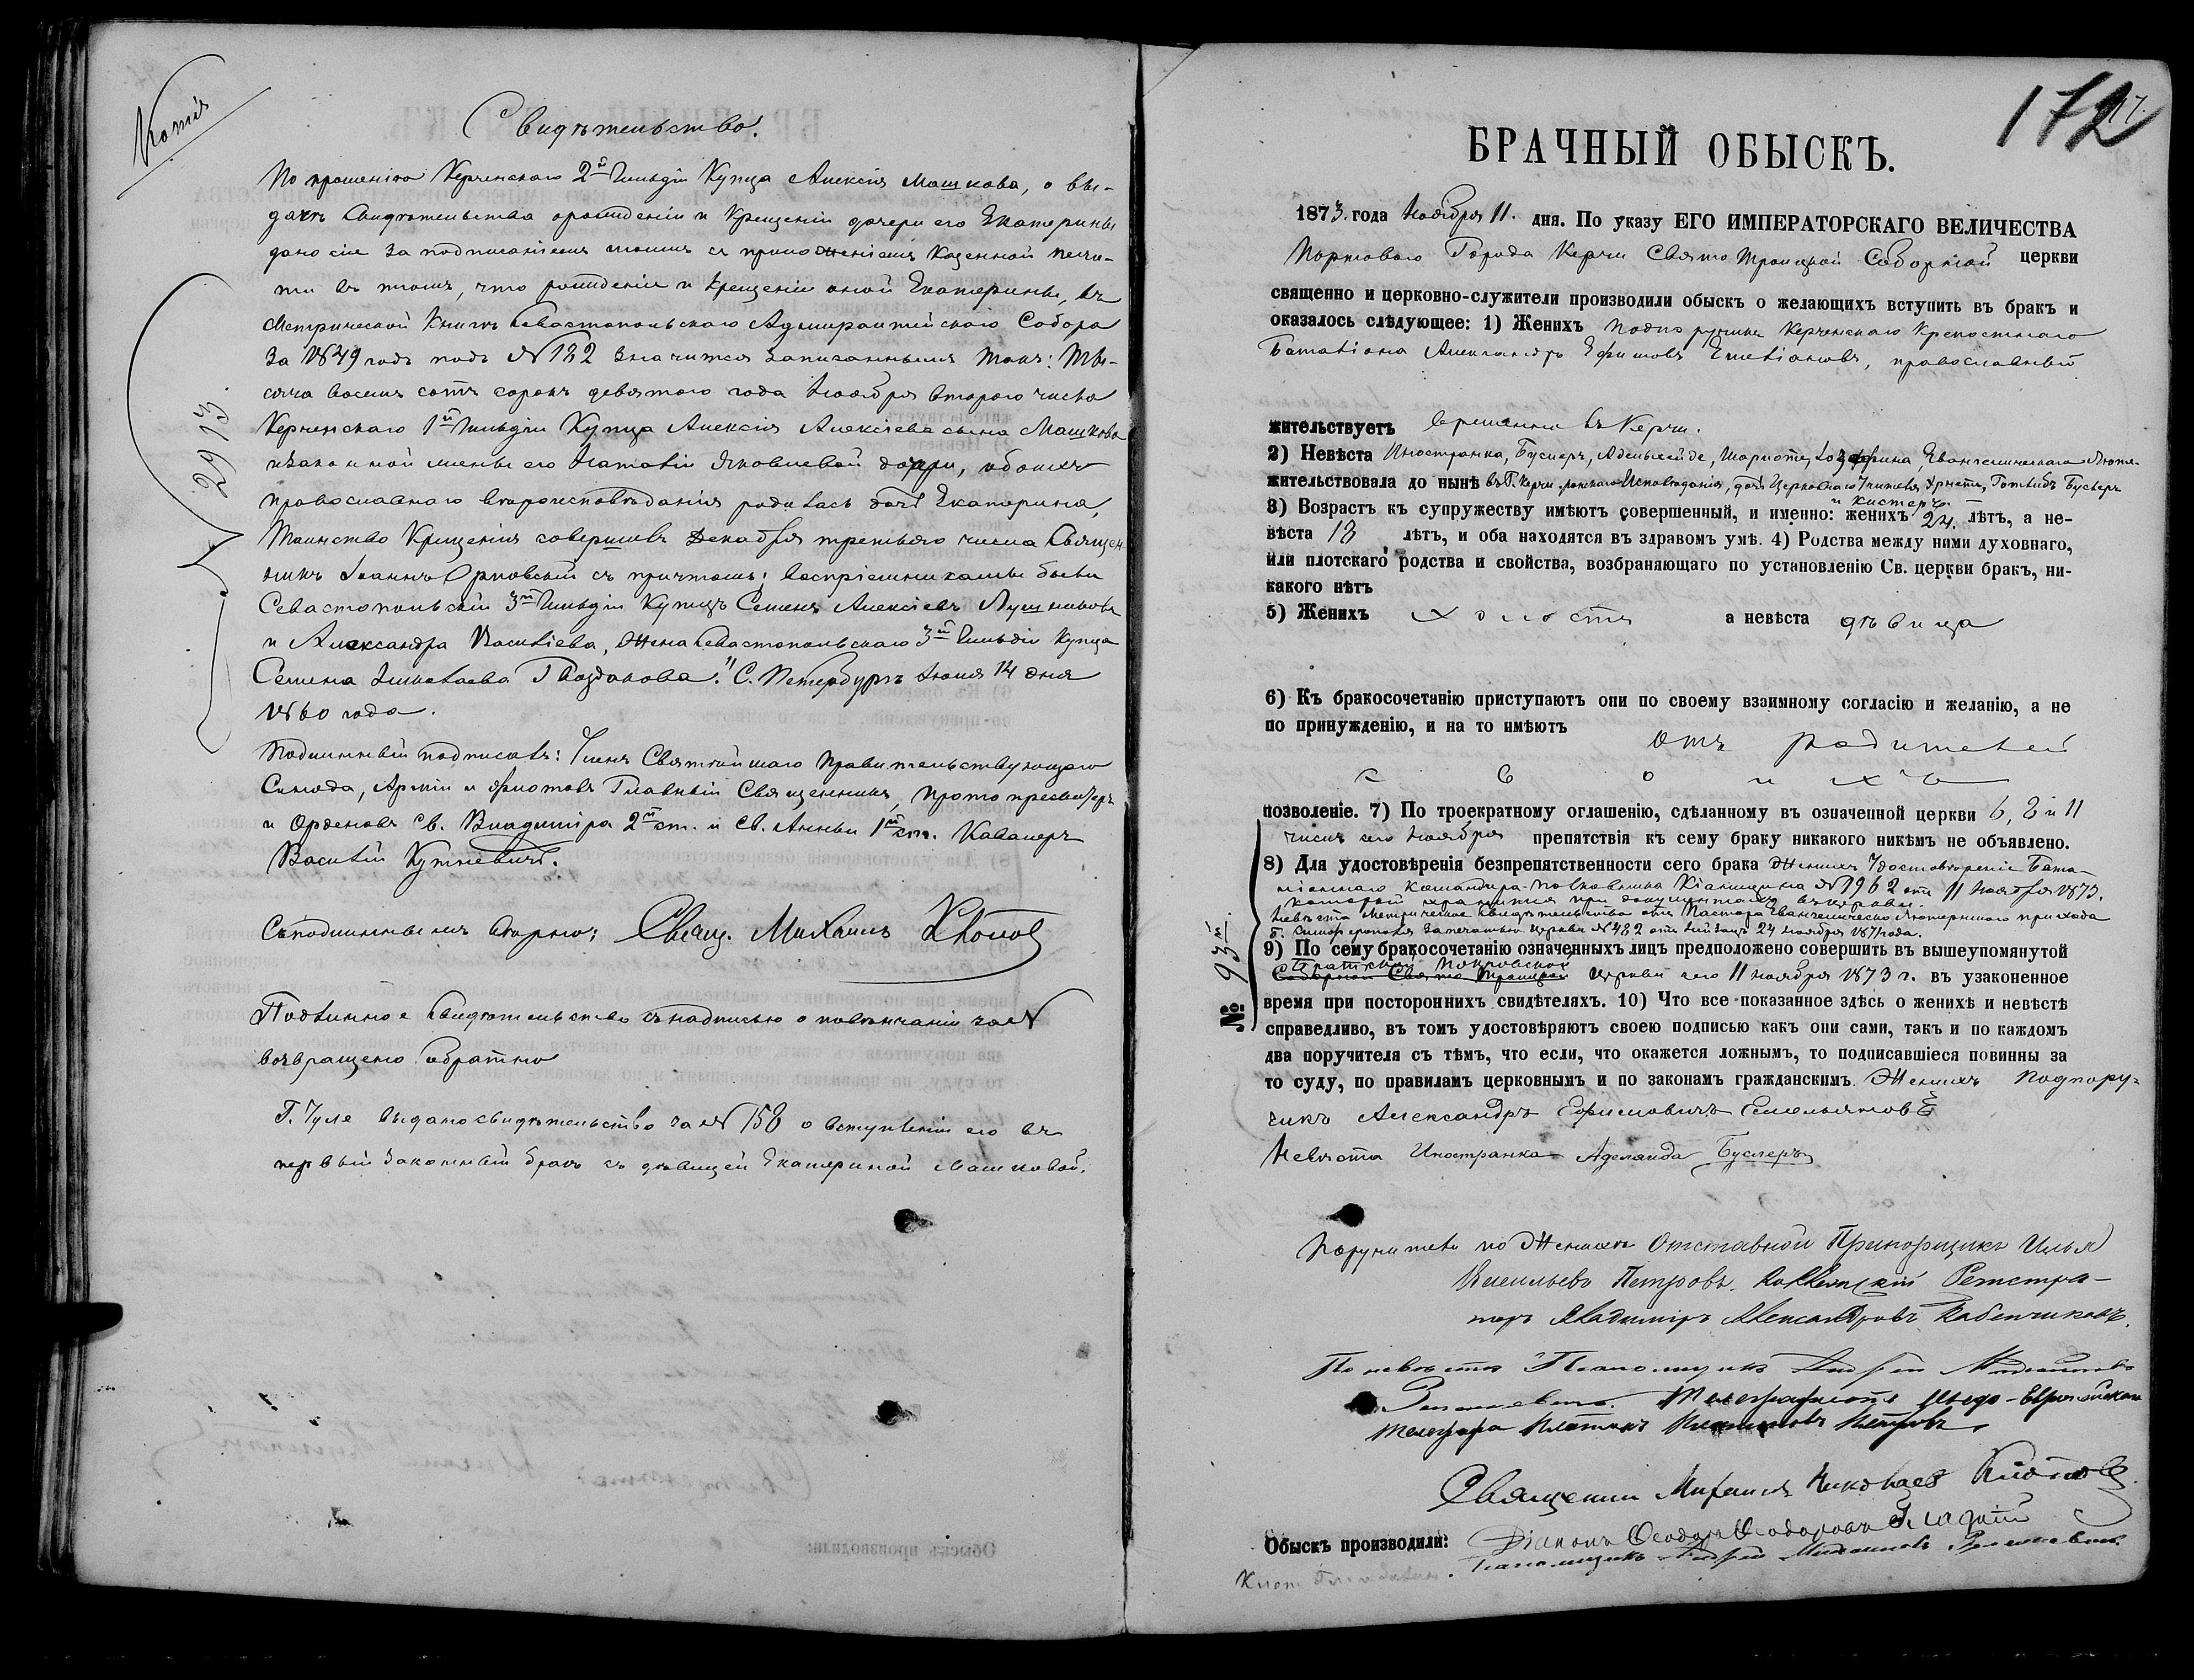 Копія
Свидѣтельство.
По прошенію Керченскаго 2й Гильдіи Купца Алексія Машкова, о вы-
дачѣ Свидѣтельства о рожденіи и Крещеніи дочери его Екатерины
дано сіе за подписаніемъ моимъ съ приложеніемъ Казенной печа-
ти въ томъ, что рожденіе и Крещеніе оной Екатерины, въ
Метрической Книгѣ Севастопольскаго Адмиралтейскаго Собора
За 1849 годъ подъ №182 Значится Записаннымъ Такъ: Ты-
сяча восемь сотъ сорокъ девятого года Ноября второго числа
Керченскаго 1й Гильдіи Купца Алексія Алексіева сына Машкова
и Законной жены его Наталіи Яковлевой дочери, обоихъ
православнаго вѣроисповѣданія родилась дочь Екатерина,
Таинство Крещенія совершилъ Декабря третьяго числа Священ-
никъ Іоаннъ Орловскій съ причтомъ; Воспріемниками были
Севастопольскій 3й Гильдіи Купецъ Семенъ Алексіевъ
и Александра Василіева, Жена Севастопольскаго 3й Гильдіи Купца
Семена Гвозданова." С. Петербургъ Іюня 14 дня
1860 года.
Подлинный подписалъ: Членъ Святѣйшаго Правительствующаго
Синода, Арміи и Флотовъ Главный Священникъ, Протопресвитеръ
и Орденовъ Св. Владиміра 2й ст. и Св. Анны 1й ст. Кавалеръ
Василій Кутневичъ.
Съ подлиннымъ вѣрно: Свящ. Михаилъ Клопов
Подлинное Свидѣтельство съ надписью о повѣнчаніи за №
возвращено обратно
Г. Чуле выдано свидѣтельство за №158 о вступленіи его въ
первый Законный бракъ съ дѣвицей Екатериной Машковой.
2913.
172
17.
БРАЧНЫЙ ОБЫСКЪ.
1873. года Ноября 11. дня. По указу ЕГО ИМПЕРАТОРСКАГО ВЕЛИЧЕСТВА
Портоваго Города Керчи Свято Троицкой Соборной церкви
священно и церковно-служители производили обыскъ о желающихъ вступить въ бракъ и
оказалось слѣдующее: 1) Женихъ Подпоручикъ Керченскаго Крепостнаго
Баталіона Александръ Ефимовъ Емеліановъ, православный
жительствуетъ временно въ Керчи.
2) Невѣста Иностранка, Буслеръ, Адельгейде, Шарлота, Іозефина, Евангелическаго Люте-
жительствовала до нынѣ въ Г. Керчи, ранскаго Исповѣданія, дочь Церковнаго Учителя Эрнстъ, Готлибъ Буслеръ
и Кистеръ.
3) Возрастъ къ супружеству имѣютъ совершенный, и именно: женихъ 24. лѣтъ, а не-
вѣста 18 лѣтъ, и оба находятся въ здравомъ умѣ. 4) Родства между ними духовнаго,
или плотскаго родства и свойства, возбраняющаго по установленію Св. церкви бракъ, ни-
какого нѣтъ
5) Женихъ холостъ а невѣста дѣвица
6) Къ бракосочетанію приступаютъ они по своему взаимному согласію и желанію, а не
по принужденію, и на то имѣютъ отъ родителей
своихъ
позволеніе. 7) По троекратному оглашенію, сдѣланному въ означенной церкви 6, 8 и 11
числъ сего Ноября препятствія къ сему браку никакого никѣмъ не объявлено.
8) Для удостовѣренія безпрепятственности сего брака Женихъ Удостовѣреніе Бата-
ліоннаго Командира Полковника №1962 отъ 11 Ноября 1873.
который хранится при документахъ въ церкви.
Невѣста Метрическое Свидѣтельство отъ Пастора Евангелическо Лютеранскаго прихода
г. Симферополя За печатью Церкви №482 отъ 24 Ноября 1871 года.
9) По сему бракосочетанію означенныхъ лицъ предположено совершить въ вышеупомянутой
Покровской
Соборной Свято Троицкой Церкви сего 11 Ноября 1873 г. въ узаконенное
время при постороннихъ свидѣтеляхъ. 10) Что все показанное здѣсь о женихѣ и невѣстѣ
справедливо, въ томъ удостовѣряютъ своею подписью какъ они сами, такъ и по каждомъ
два поручителя съ тѣмъ, что если, что окажется ложнымъ, то подписавшіеся повинны за
то суду, по правиламъ церковнымъ и по законамъ гражданскимъ. Женихъ Подпору-
чикъ Александръ Ефимовичъ Емельяновъ
Невѣста Иностранка Аделаида Буслеръ
№ 93й.
Поручители по Женихѣ Отставной Прапорщикъ Илья
Васильевъ Петровъ. Коллежскій Регистра-
торъ Владиміръ Александровъ
По невѣстѣ Псаломщикъ Андрей
Телеграфистъ Индо-Европейскаго
телеграфа Платонъ Петровъ
Священникъ Михаилъ Николаевъ Клопов
Обыскъ производили: Діаконъ Ѳеодоръ Ѳеодоровъ Гладкій
Псаломщикъ Андрей